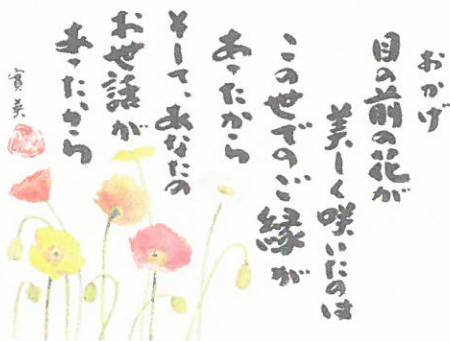 おかげ
目の前の花が
美しく咲いたのは
この世でのご縁が
あったから
そして、あなたの
お世話が
あったから
實美